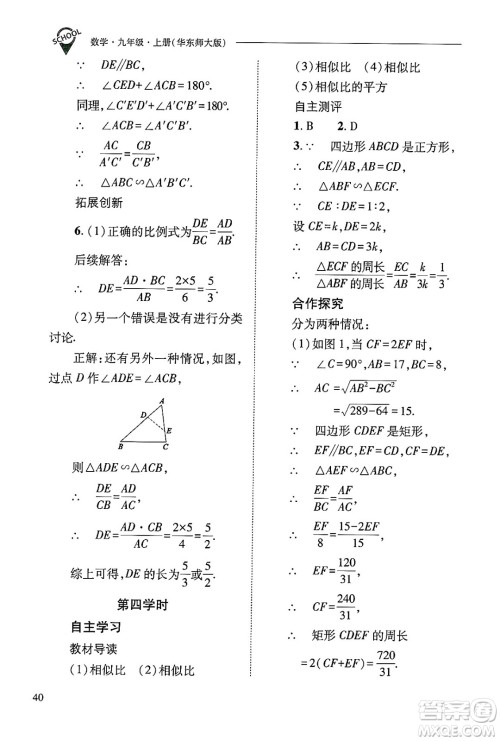 SCHOOL
数学·九年级·上册(华东师大版)
∵ DE∥BC,
∴ ∠CED+∠ACB=180°.
同理,∠C'E'D'+∠A'C'B'=180°.
∴ ∠ACB=∠A'C'B'.
∵ AC/A'C' = CB/C'B',
∴ △ABC∽△A'B'C'.
拓展创新
6. (1)正确的比例式为DE/BC=AD/AB.
后续解答:
∴ DE=AD·BC/AB=2×5/6=5/3.
(2)另一个错误是没有进行分类
讨论.
正解:还有另外一种情况,如图,
过点 D 作∠ADE=∠ACB,
A
D
E
B
C
则△ADE∽△ACB.
∴ DE/CB=AD/AC,
∴ DE=AD·CB/AC=2×5/4=5/2.
综上可得,DE 的长为5/3或5/2.
第四学时
自主学习
教材导读
(1)相似比 (2)相似比
(3)相似比 (4)相似比
(5)相似比的平方
自主测评
1. B 2. D
3. ∵ 四边形 ABCD 是正方形,
∴ CE∥AB,
∴ △ABF∽△CEF.
∵ CE∶DE=1∶2,
设 CE=k,DE=2k,
∴ AB=CD=3k,
∴ △ECF的周长/△ABF的周长=EC/AB=k/3k=1/3.
合作探究
分为两种情况:
(1)如图 1,当 CF=2EF 时,
∵ ∠C=90°,AB=17,BC=8,
∴ AC=√AB²-BC²
=√289-64=15.
∵ 四边形 CDEF 是矩形,
∴ EF∥BC,
∴ △AEF∽△ABC,
∴ EF/BC=AF/AC,
∴ EF/8=15-2EF/15,
∴ EF=120/31,
∴ CF=240/31,
∴ 矩形 CDEF 的周长
=2(CF+EF)=720/31.
40